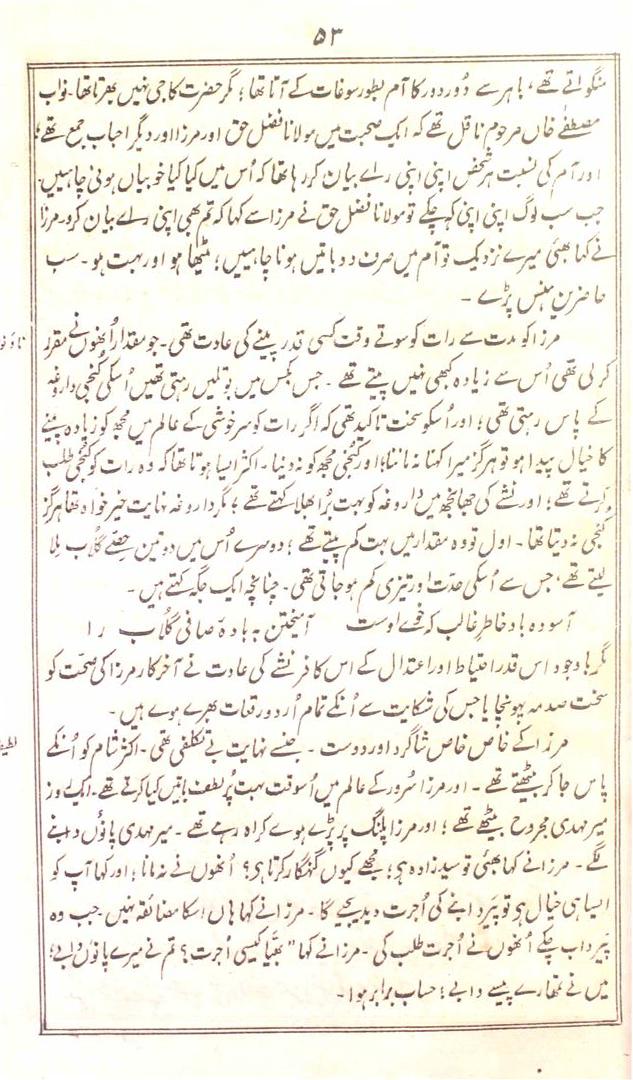 ۵۳
منگواتے تھے، باہر سے دُور دور کا آم بطور سوغات کے آتا تھا؛ مگر حضرت کا جی نہیں بھرتا تھا۔ نواب
مصطفےٰ خاں مرحوم ناقل تھے کہ ایک صحبت میں مولانا فضل حق اور مرزا اور دیگر احباب جمع تھے؛
اور آم کی نسبت ہر شخص اپنی اپنی راے بیان کر رہا تھا کہ اُس میں کیا کیا خوبیاں ہونی چاہییں۔
جب سب لوگ اپنی اپنی کہ چکے تو مولانا فضل حق نے مرزا سے کہا کہ تم بھی اپنی راے بیان کرو۔ مرزا
نے کہا بھئی میرے نزدیک تو آم میں صرف دو باتیں ہونا چاہییں؛ میٹھا ہو اور بہت ہو۔ سب
حاضرین ہنس پڑے ۔
مرزا کو مدت سے رات کو سوتے وقت کسی قدر پینے کی عادت تھی۔ جو مقدار اُنھوں نے مقرر
کر لی تھی اُس سے زیادہ کبھی نہیں پیتے تھے ۔ جس بکس میں بوتلیں رہتی تھیں اُسکی کُنجی داروغہ
کے پاس رہتی تھی؛ اور اُسکو سخت تاکید تھی کہ اگر رات کو سرخوشی کے عالم میں مجھ کو زیادہ پینے
کا خیال پیدا ہو تو ہرگز میرا کہنا نہ ماننا؛ اور کُنجی مجھ کو نہ دینا ۔ اکثر ایسا ہوتا تھا کہ وہ رات کو کُنجی طلب
کرتے تھے؛ اور نشے کی جھانجھ میں داروغہ کو بہت بُرا بھلا کہتے تھے؛ مگر داروغہ نہایت خیر خواہ تھا ہرگز
کُنجی نہ دیتا تھا ۔ اول تو وہ مقدار میں بہت کم پیتے تھے؛ دوسرے اُس میں دو تین حصّے گُلاب مِلا
لیتے تھے، جس سے اُسکی حدّت اور تیزی کم ہو جاتی تھی۔ چنانچہ ایک جگہ کہتے ہیں ۔
آسودہ باد خاطرِ غالب کہ خوے اوست آمیختن بہ بادۂ صافی گُلاب را
مگر باوجود اس قدر احتیاط اور اعتدال کے اس کافر نشے کی عادت نے آخر کار مرزا کی صحّت کو
سخت صدمہ پہونچایا جس کی شکایت سے اُنکے تمام اُردو رقعات بھرے ہوے ہیں ۔
مرزا کے خاص خاص شاگرد اور دوست ۔ جنسے نہایت بے تکلفی تھی۔ اکثر شام کو اُنکے
پاس جا کر بیٹھتے تھے ۔ اور مرزا سُرور کے عالم میں اُسوقت بہت پُر لطف باتیں کیا کرتے تھے۔ ایک روز
میر مہدی مجروح بیٹھے تھے؛ اور مرزا پلنگ پر پڑے ہوے کراہ رہے تھے ۔ میر مہدی پاؤں دابنے
لگے ۔ مرزا نے کہا بھئی تو سید زادہ ہی؛ مجھے کیوں گنہگار کرتا ہی؟ اُنھوں نے نہ مانا؛ اور کہا آپ کو
ایسا ہی خیال ہی تو پَیر دابنے کی اُجرت دیدیجیے گا ۔ مرزا نے کہا ہاں اسکا مضائقہ نہیں۔ جب وہ
پَیر داب چکے اُنھوں نے اُجرت طلب کی ۔ مرزا نے کہا "بھیّا کیسی اُجرت؟ تم نے میرے پانوں دابے؛
میں نے تمھارے پیسے دابے؛ حساب برابر ہوا ۔